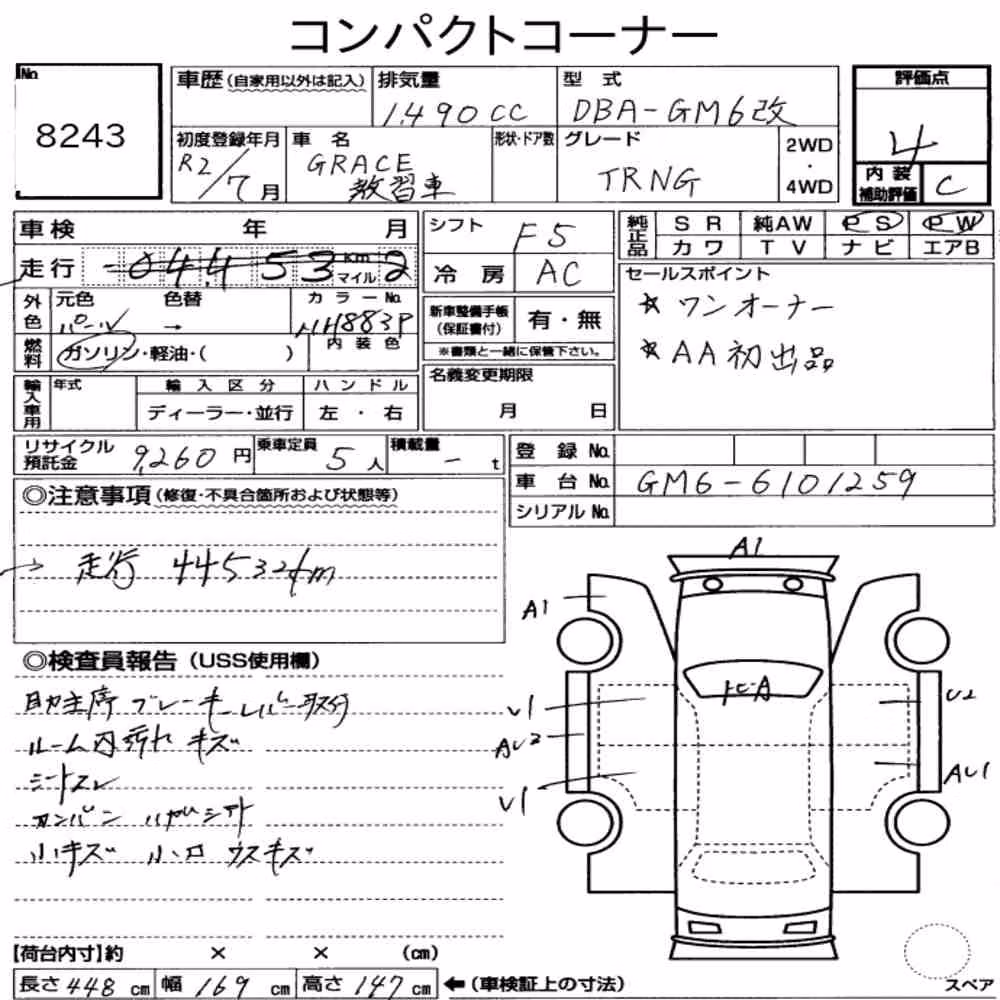 コンパクトコーナー
No.
8243
車歴(自家用以外は記入)
排気量
1,490cc
型式
DBA-GM6改
評価点
4
初度登録年月
R2/7月
車名
GRACE
教習車
形状・ドア数
グレード
TRNG
2WD
・
4WD
内装
補助評価
C
車検 年 月
シフト
F5
純正品
SR 純AW PS PW
カワ TV ナビ エアB
走行
044532
Km
マイル
冷房
AC
セールスポイント
* ワンオーナー
* AA初出品
外色
元色 色替
パール →
カラーNo.
NH883P
新車整備手帳
(保証書付)
有・無
※書類と一緒に保管下さい。
燃料
ガソリン・軽油・( )
内装色
輸入車用
年式
輸入区分
ディーラー・並行
ハンドル
左・右
名義変更期限
月 日
リサイクル
預託金
9,260円
乗車定員
5人
積載量
- t
登録No.
車台No.
GM6-6101259
シリアルNo.
◎注意事項(修復・不具合箇所および状態等)
→ 走行 44532km
◎検査員報告(USS使用欄)
助主席ブレーキレバー取付
ルーム内汚れ キズ
シートスレ
カンバン ハガシアト
小キズ 小凹 ウスキズ
A1
A1
トビA
U1
U2
AU2
U1
AU1
【荷台内寸】約 × × (cm)
長さ448cm 幅169cm 高さ147cm ←(車検証上の寸法)
スペア